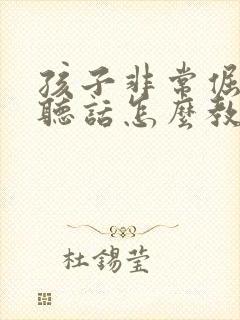 孩子非常倔
聽話怎麼教
杜錫瑩